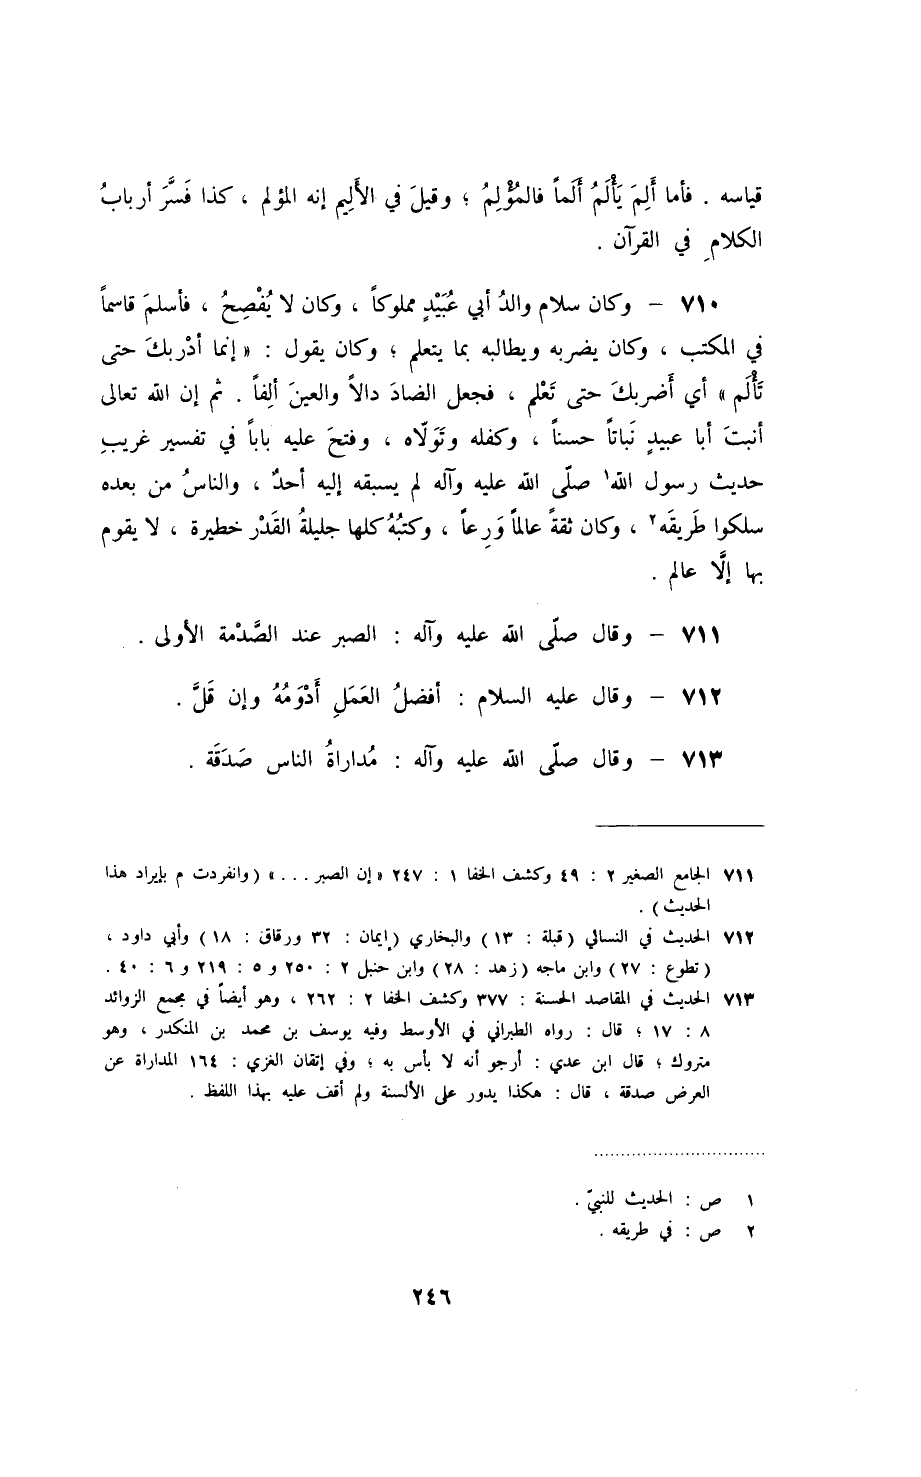 قياسه . فأما أَلِمَ يَأْلَمُ أَلَماً فالمُؤْلِمُ ؛ وقيلَ في الأَلِيم إنه المؤلم ، كذا فَسَّرَ أربابُ
الكلامِ في القرآن .
٧١٠ – وكان سلام والدُ أبي عُبَيْدٍ مملوكاً ، وكان لا يُفْصِحُ ، فأسلمَ قاسماً
في المكتب ، وكان يضربه ويطالبه بما يتعلم ؛ وكان يقول : « إنما أدْربكَ حتى
تَأْلَم » أي أَضربكَ حتى تَعْلم ، فجعل الضادَ دالاً والعينَ ألِفاً . ثم إن الله تعالى
أنبتَ أبا عبيدٍ نَباتاً حسناً ، وكفله وتَوَلّاه ، وفتحَ عليه باباً في تفسير غريبِ
حديث رسول الله١ صلّى الله عليه وآله لم يسبقه إليه أحدٌ ، والناسُ من بعده
سلكوا طَريقَه٢ ، وكان ثقةً عالماً وَرِعاً ، وكتبُهُ كلها جليلةُ القَدْر خطيرة ، لا يقوم
بها إلَّا عالم .
٧١١ – وقال صلّى الله عليه وآله : الصبر عند الصَّدْمة الأولى .
٧١٢ – وقال عليه السلام : أفضلُ العَمَلِ أَدْوَمُهُ وإن قَلَّ .
٧١٣ – وقال صلّى الله عليه وآله : مُداراةُ الناس صَدَقَة .
٧١١ الجامع الصغير ٢ : ٤٩ وكشف الخفا ١ : ٢٤٧ « إن الصبر . . . » ( وانفردت م بإيراد هذا
الحديث ) .
٧١٢ الحديث في النسائي ( قبلة : ١٣ ) والبخاري ( إيمان : ٣٢ ورقاق : ١٨ ) وأبي داود ،
( تطوع : ٢٧ ) وابن ماجه ( زهد : ٢٨ ) وابن حنبل ٢ : ٢٥٠ و ٥ : ٢١٩ و ٦ : ٤٠ .
٧١٣ الحديث في المقاصد الحسنة : ٣٧٧ وكشف الخفا ٢ : ٢٦٢ ، وهو أيضاً في مجمع الزوائد
٨ : ١٧ ؛ قال : رواه الطبراني في الأوسط وفيه يوسف بن محمد بن المنكدر ، وهو
متروك ؛ قال ابن عدي : أرجو أنه لا بأس به ؛ وفي إتقان الغزي : ١٦٤ المداراة عن
العرض صدقة ، قال : هكذا يدور على الألسنة ولم أقف عليه بهذا اللفظ .
١ ص : الحديث للنبيّ .
٢ ص : في طريقه .
٢٤٦